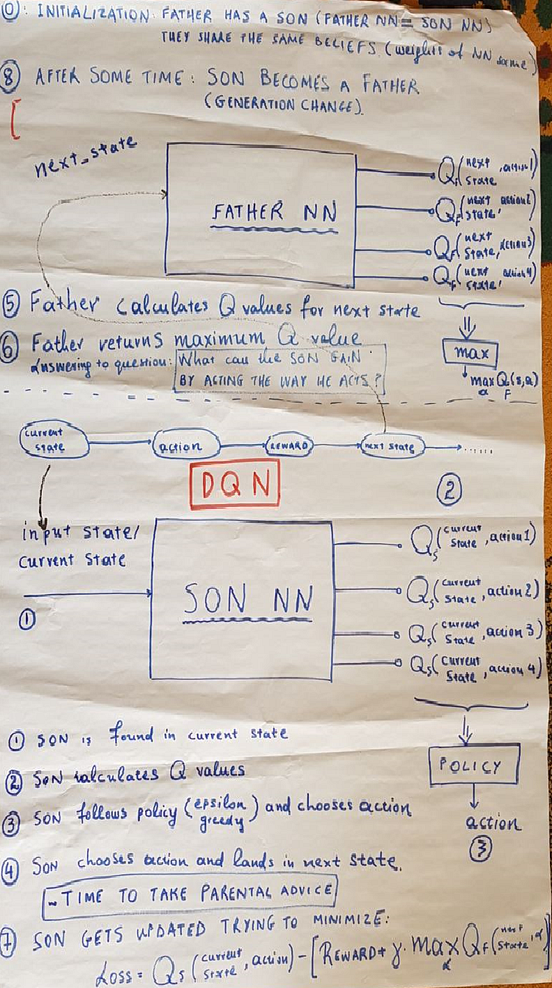 0: INITIALIZATION: FATHER HAS A SON (FATHER NN = SON NN)
THEY SHARE THE SAME BELIEFS (weights of NN same)
8 AFTER SOME TIME: SON BECOMES A FATHER
(GENERATION CHANGE).
[
next_state
FATHER NN
QF(next state, action1)
QF(next state, action2)
QF(next state, action3)
QF(next state, action4)
5 Father calculates Q values for next state
6 Father returns maximum Q value
answering to question: What can the SON GAIN
BY ACTING THE WAY HE ACTS?
max
max a QF(s,a)
current state
action
REWARD
next state
......
DQN
2
input state/
current state
1
SON NN
QS(current state, action1)
QS(current state, action2)
QS(current state, action3)
QS(current state, action4)
1 SON is found in current state
2 SON calculates Q values
3 SON follows policy (epsilon greedy) and chooses action
POLICY
action
3
4 SON chooses action and lands in next state.
- TIME TO TAKE PARENTAL ADVICE
7 SON GETS UPDATED TRYING TO MINIMIZE:
Loss = QS(current state, action) - [REWARD + γ · max a QF(next state, a)]